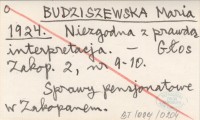 BUDZISZEWSKA Maria
1924. Niezgodna z prawdą
interpretacja. — Głos
Zakop. 2, nr 9-10.
Sprawy pensjonatowe
w Zakopanem.